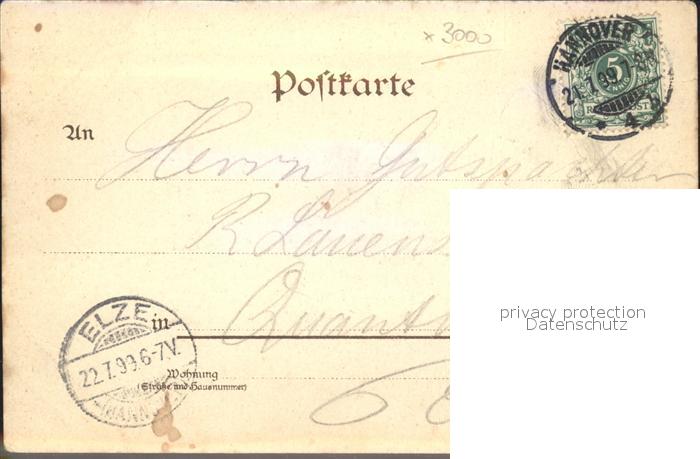 x 3000
HANNOVER
5
21.7.99.7-8N.
* 4
Postkarte
An
Herrn Gutspächter
R. Lauens
Quanth
privacy protection
Datenschutz
ELZE
22.7.99.6-7V.
(HANN.)
in
Wohnung
(Straße und Hausnummer)